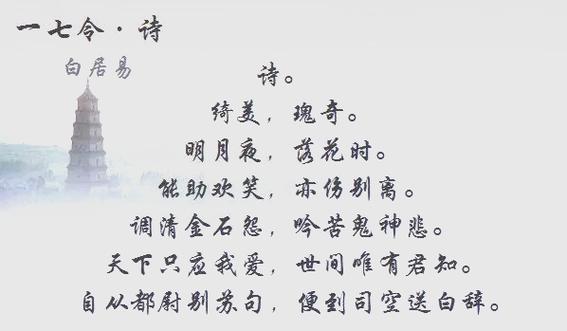 一七令·诗
白居易
诗。
绮美，瑰奇。
明月夜，落花时。
能助欢笑，亦伤别离。
调清金石怨，吟苦鬼神悲。
天下只应我爱，世间唯有君知。
自从都尉别苏句，便到司空送白辞。